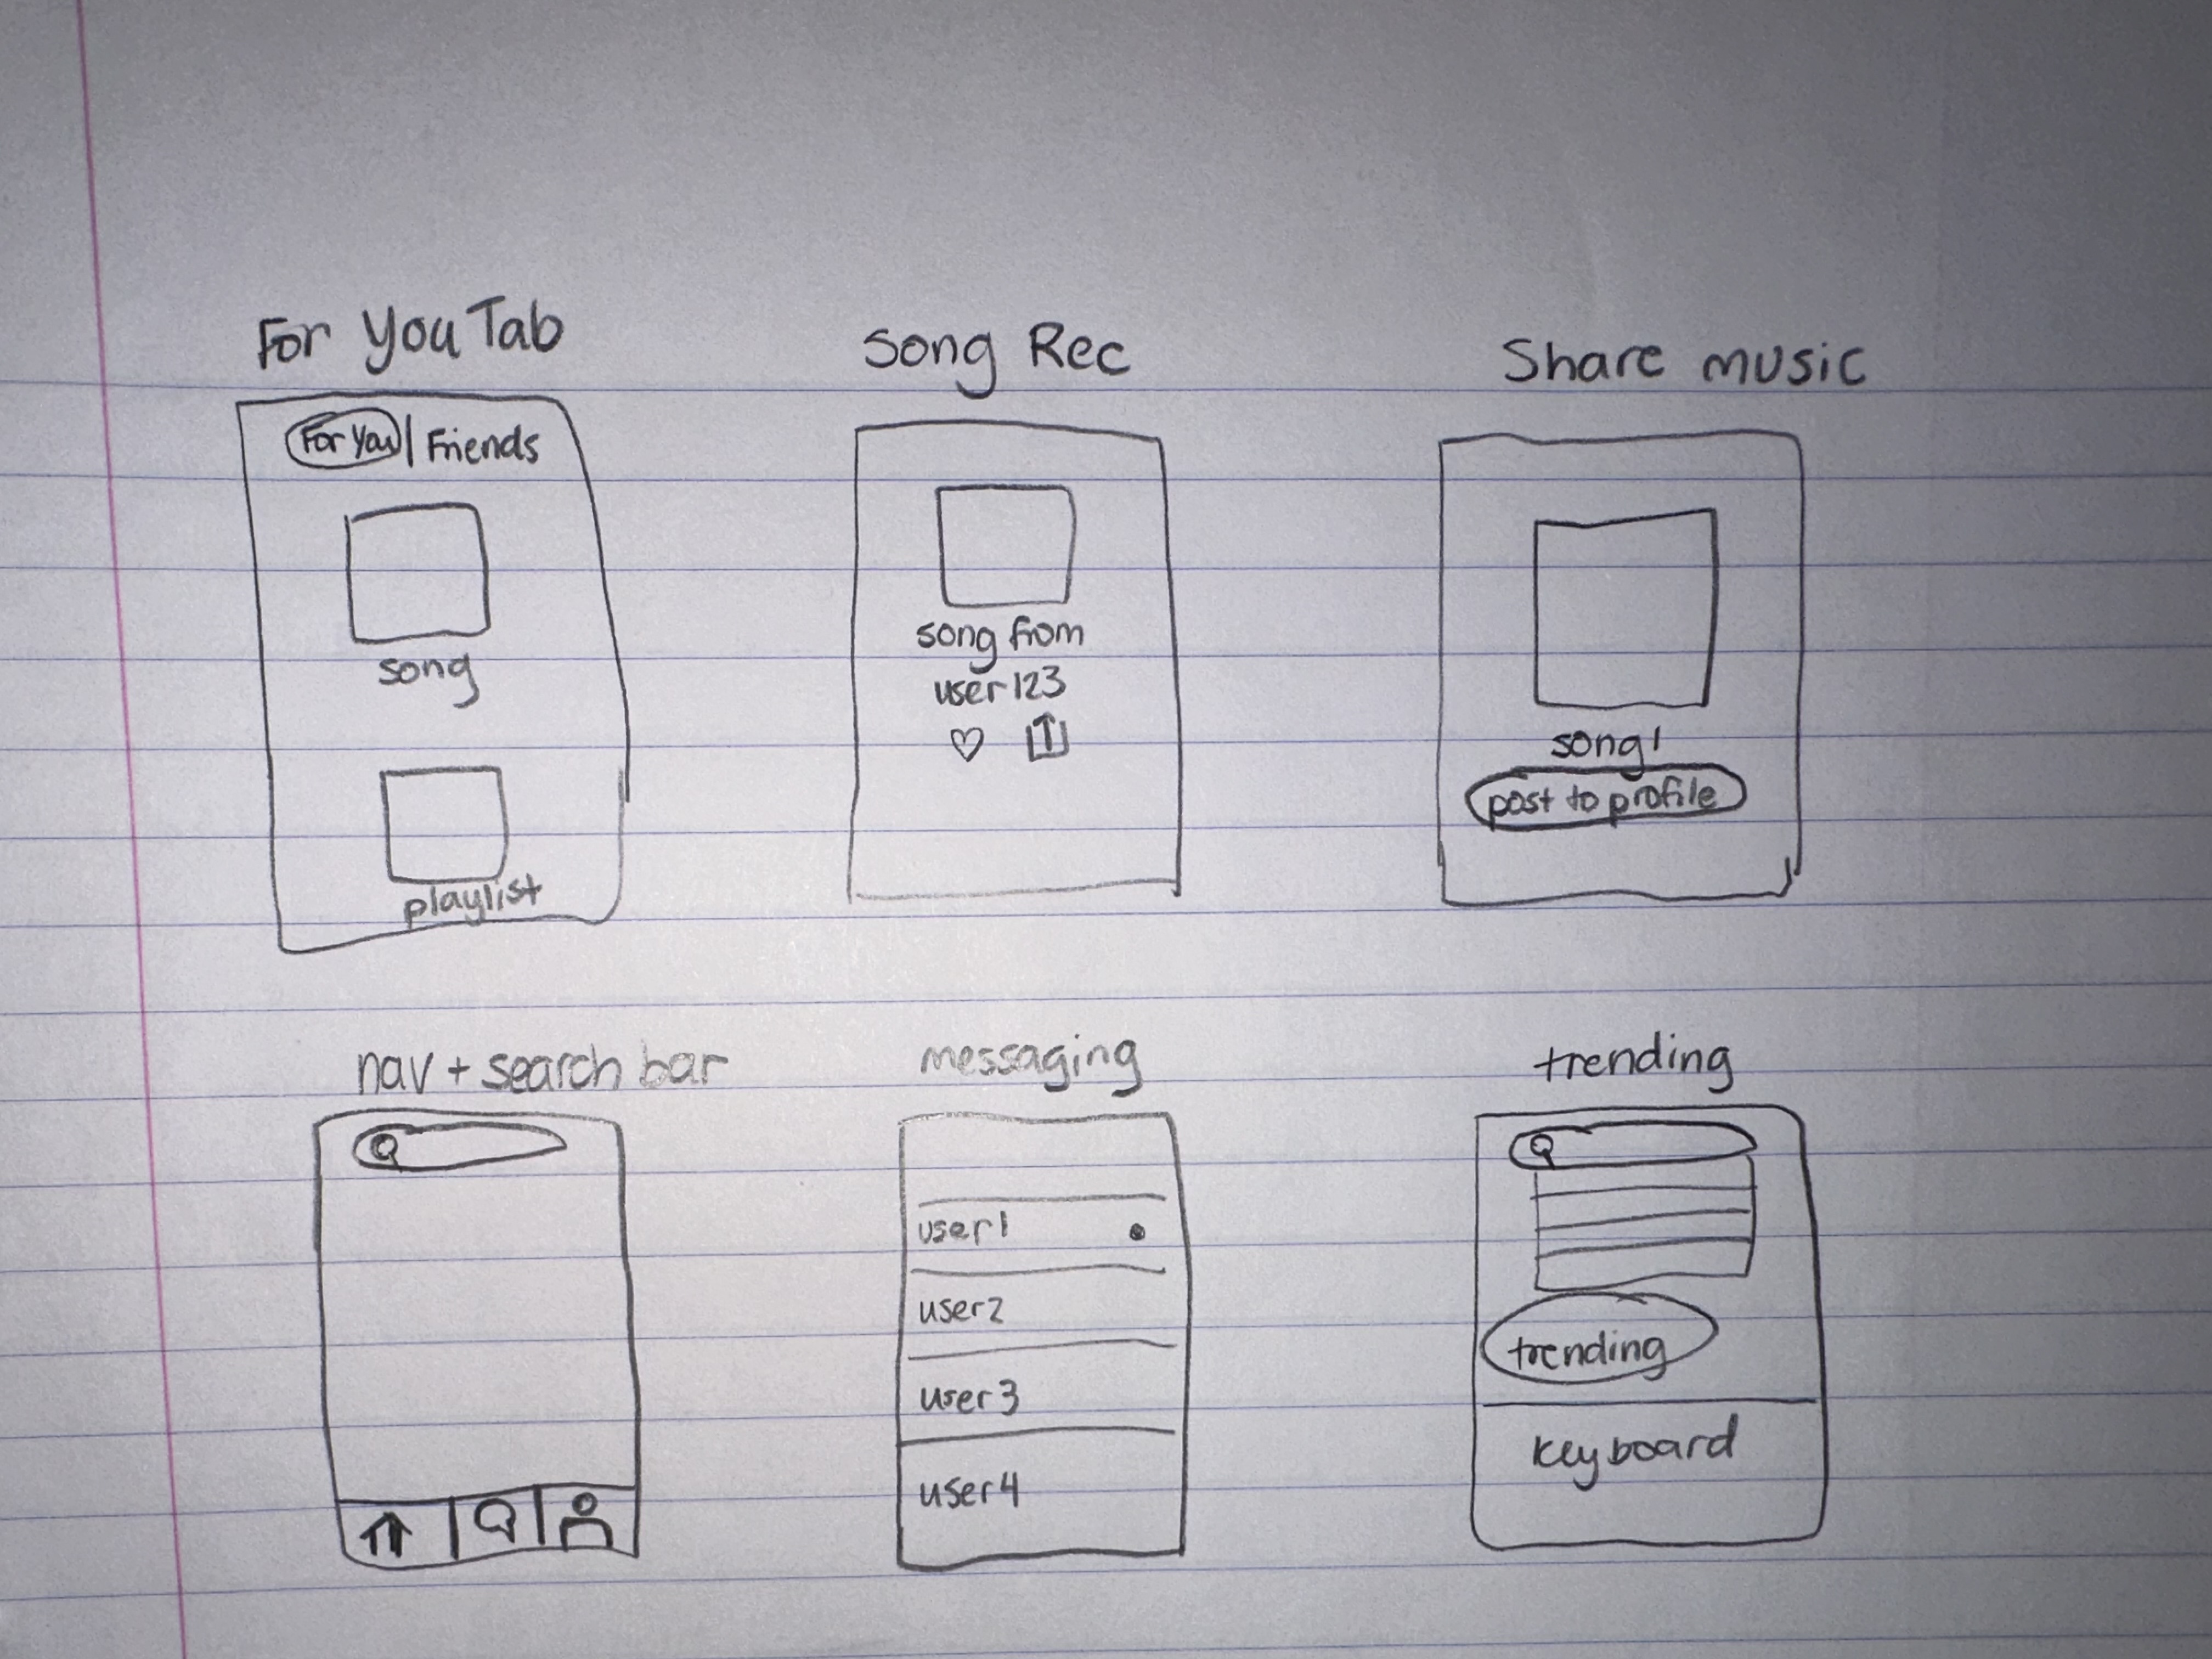 For You Tab
For You | Friends
song
playlist
Song Rec
song from
user123
Share music
song1
post to profile
nav + search bar
messaging
user1
user2
user3
user4
trending
trending
keyboard